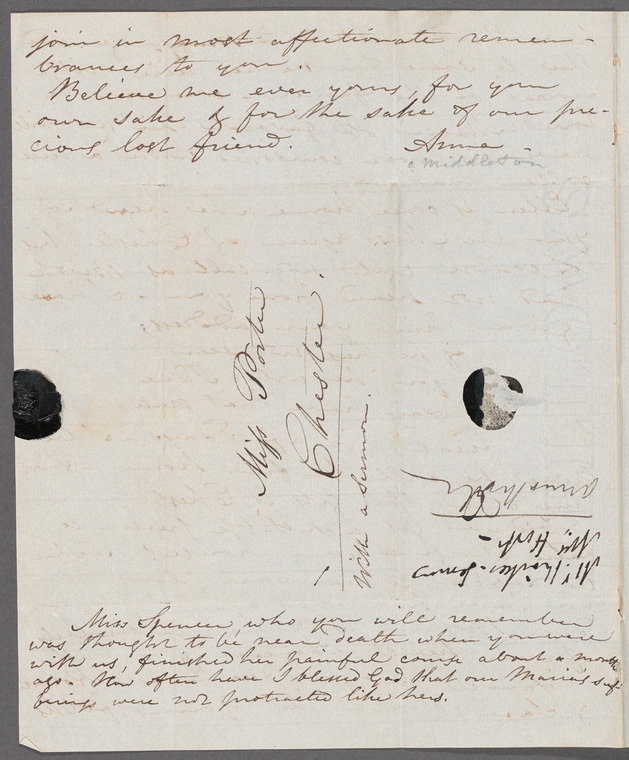 join in most affectionate remem-
brances to you.
Believe me ever yours, for your
own sake & for the sake of our pre-
cious lost friend. Anne -
Middleton
Miss Porter
Chester.
With a Sermon.
Mr.
Miss Spencer who you will remember
was thought to be near death when you were
with us, finished her painful course about a month
ago. How often have I blessed God that our Maria's suf-
ferings were not protracted like hers.